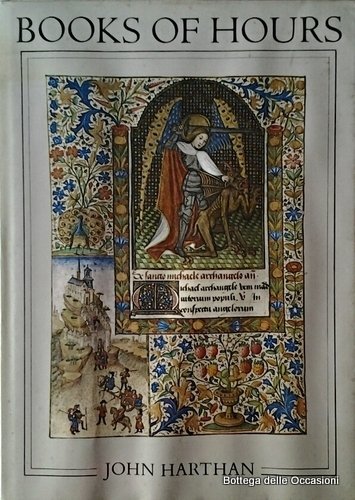 BOOKS OF HOURS
De sancto michaele archangelo añ
Michael archangele veni in adiu
utorum populi. V In
conspectu angelorum
JOHN HARTHAN
Bottega delle Occasioni